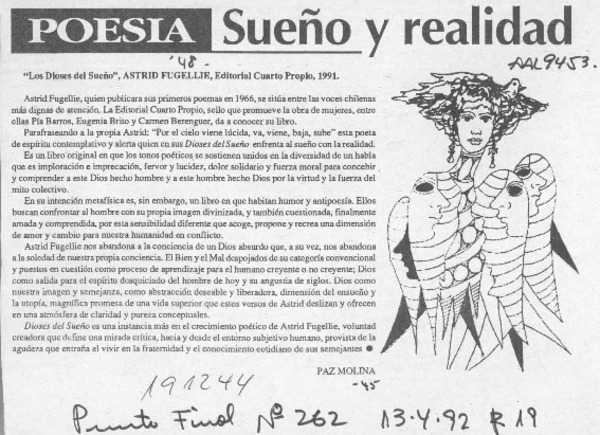 POESIA Sueño y realidad
'48 -
AAL9453.
"Los Dioses del Sueño", ASTRID FUGELLIE, Editorial Cuarto Propio, 1991.
Astrid Fugellie, quien publicara sus primeros poemas en 1966, se sitúa entre las voces chilenas
más dignas de atención. La Editorial Cuarto Propio, sello que promueve la obra de mujeres, entre
ellas Pía Barros, Eugenia Brito y Carmen Berenguer, da a conocer su libro.
Parafraseando a la propia Astrid: "Por el cielo viene lúcida, va, viene, baja, sube" esta poeta
de espíritu contemplativo y alerta quien en sus Dioses del Sueño enfrenta al sueño con la realidad.
Es un libro original en que los tonos poéticos se sostienen unidos en la diversidad de un habla
que es imploración e imprecación, fervor y lucidez, dolor solidario y fuerza moral para concebir
y comprender a este Dios hecho hombre y a este hombre hecho Dios por la virtud y la fuerza del
mito colectivo.
En su intención metafísica es, sin embargo, un libro en que habitan humor y antipoesía. Ellos
buscan confrontar al hombre con su propia imagen divinizada, y también cuestionada, finalmente
amada y comprendida, por esta sensibilidad diferente que acoge, propone y recrea una dimensión
de amor y cambio para nuestra humanidad en conflicto.
Astrid Fugellie nos abandona a la conciencia de un Dios absurdo que, a su vez, nos abandona
a la soledad de nuestra propia conciencia. El Bien y el Mal despojados de su categoría convencional
y puestos en cuestión como proceso de aprendizaje para el humano creyente o no creyente; Dios
como salida para el espíritu desquiciado del hombre de hoy y su angustia de siglos. Dios como
nuestra imagen y semejanza, como abstracción deseable y liberadora, dimensión del ensueño y
la utopía, magnífica promesa de una vida superior que estos versos de Astrid deslizan y ofrecen
en una atmósfera de claridad y pureza conceptuales.
Dioses del Sueño es una instancia más en el crecimiento poético de Astrid Fugellie, voluntad
creadora que define una mirada crítica, hacia y desde el entorno subjetivo humano, provista de la
agudeza que entraña el vivir en la fraternidad y el conocimiento cotidiano de sus semejantes ●
PAZ MOLINA
-45
191244
Punto Final Nº 262 13.4.92 P. 19